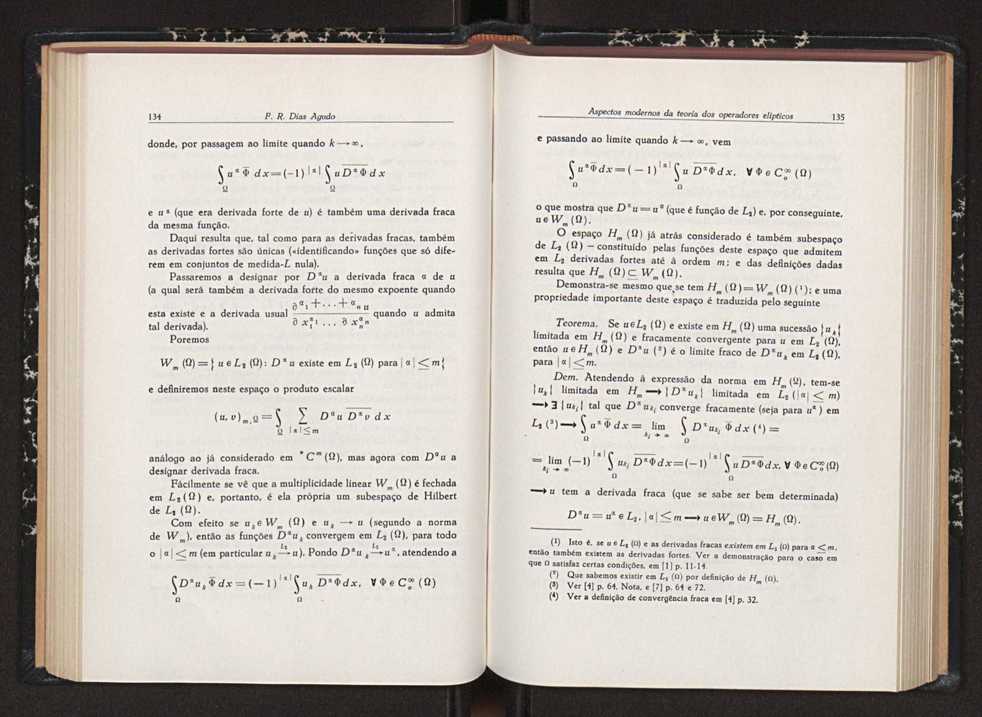 134 F. R. Dias Agudo
donde, por passagem ao limite quando k → ∞,
∫_Ω u^α Φ̅ dx = (−1)^|α| ∫_Ω u D̅^α̅Φ̅ dx
e u^α (que era derivada forte de u) é também uma derivada fraca
da mesma função.
Daqui resulta que, tal como para as derivadas fracas, também
as derivadas fortes são únicas («identificando» funções que só dife-
rem em conjuntos de medida-L nula).
Passaremos a designar por D^α u a derivada fraca α de u
(a qual será também a derivada forte do mesmo expoente quando
esta existe e a derivada usual ∂^{α_1+...+α_n} u / ∂x_1^{α_1} ... ∂x_n^{α_n} quando u admita
tal derivada).
Poremos
W_m (Ω) = } u ∈ L_2 (Ω): D^α u existe em L_2 (Ω) para |α| ≤ m {
e definiremos neste espaço o produto escalar
(u, v)_{m,Ω} = ∫_Ω Σ_{|α|≤m} D^α u D̅^α̅v̅ dx
análogo ao já considerado em *C^m (Ω), mas agora com D^α u a
designar derivada fraca.
Fácilmente se vê que a multiplicidade linear W_m (Ω) é fechada
em L_2 (Ω) e, portanto, é ela própria um subespaço de Hilbert
de L_2 (Ω).
Com efeito se u_k ∈ W_m (Ω) e u_k → u (segundo a norma
de W_m), então as funções D^α u_k convergem em L_2 (Ω), para todo
o |α| ≤ m (em particular u_k →^{L_2} u). Pondo D^α u_k →^{L_2} u^α, atendendo a
∫_Ω D^α u_k Φ̅ dx = (−1)^|α| ∫_Ω u_k D̅^α̅Φ̅ dx, ∀ Φ ∈ C_o^∞ (Ω)
Aspectos modernos da teoria dos operadores elípticos 135
e passando ao limite quando k → ∞, vem
∫_Ω u^α Φ̅ dx = (−1)^|α| ∫_Ω u D̅^α̅Φ̅ dx, ∀ Φ ∈ C_o^∞ (Ω)
o que mostra que D^α u = u^α (que é função de L_2) e, por conseguinte,
u ∈ W_m (Ω).
O espaço H_m (Ω) já atrás considerado é também subespaço
de L_2 (Ω) – constituído pelas funções deste espaço que admitem
em L_2 derivadas fortes até à ordem m; e das definições dadas
resulta que H_m (Ω) ⊆ W_m (Ω).
Demonstra-se mesmo que se tem H_m (Ω) = W_m (Ω) (¹); e uma
propriedade importante deste espaço é traduzida pelo seguinte
Teorema. Se u ∈ L_2 (Ω) e existe em H_m (Ω) uma sucessão } u_k {
limitada em H_m (Ω) e fracamente convergente para u em L_2 (Ω),
então u ∈ H_m (Ω) e D^α u (²) é o limite fraco de D^α u_k em L_2 (Ω),
para |α| ≤ m.
Dem. Atendendo à expressão da norma em H_m (Ω), tem-se
} u_k { limitada em H_m → } D^α u_k { limitada em L_2 (|α| ≤ m)
→ ∃ } u_{k_j} { tal que D^α u_{k_j} converge fracamente (seja para u^α) em
L_2 (³) → ∫_Ω u^α Φ̅ dx = lim_{k_j → ∞} ∫_Ω D^α u_{k_j} Φ̅ dx (⁴) =
= lim_{k_j → ∞} (−1)^|α| ∫_Ω u_{k_j} D̅^α̅Φ̅ dx = (−1)^|α| ∫_Ω u D̅^α̅Φ̅ dx, ∀ Φ ∈ C_o^∞ (Ω)
→ u tem a derivada fraca (que se sabe ser bem determinada)
D^α u = u^α ∈ L_2, |α| ≤ m → u ∈ W_m (Ω) = H_m (Ω).
(¹) Isto é, se u ∈ L_2 (Ω) e as derivadas fracas existem em L_2 (Ω) para α ≤ m,
então também existem as derivadas fortes. Ver a demonstração para o caso em
que Ω satisfaz certas condições, em [1] p. 11-14.
(²) Que sabemos existir em L_2 (Ω) por definição de H_m (Ω).
(³) Ver [4] p. 64, Nota, e [7] p. 64 e 72.
(⁴) Ver a definição de convergência fraca em [4] p. 32.